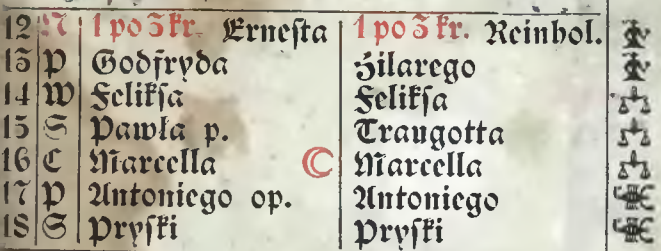 12 N 1 po 3 kr. Erneſta 1 po 3 kr. Reinhol.
13 P Godfryda Hilarego
14 W Felikſa Felikſa
15 S Pawła p. Traugotta
16 C Marcella Marcella
17 P Antoniego op. Antoniego
18 S Pryſki Pryſki